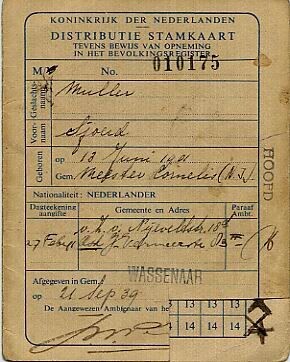 KONINKRIJK DER NEDERLANDEN
DISTRIBUTIE STAMKAART
TEVENS BEWIJS VAN OPNEMING
IN HET BEVOLKINGSREGISTER
M No. 010175
Geslachts-
naam Muller
Voor-
naam Sjoerd
Geboren op 13 Juni
Gem. Meester Cornelis (N.I.)
Nationaliteit: NEDERLANDER
Dagteekening
aangifte
Gemeente en Adres
Paraaf
Ambt.
HOOFD
WASSENAAR
Afgegeven in Gem.:
op 21 Sep 39
De Aangewezen Ambtenaar van het
13 13 13
14 14 14